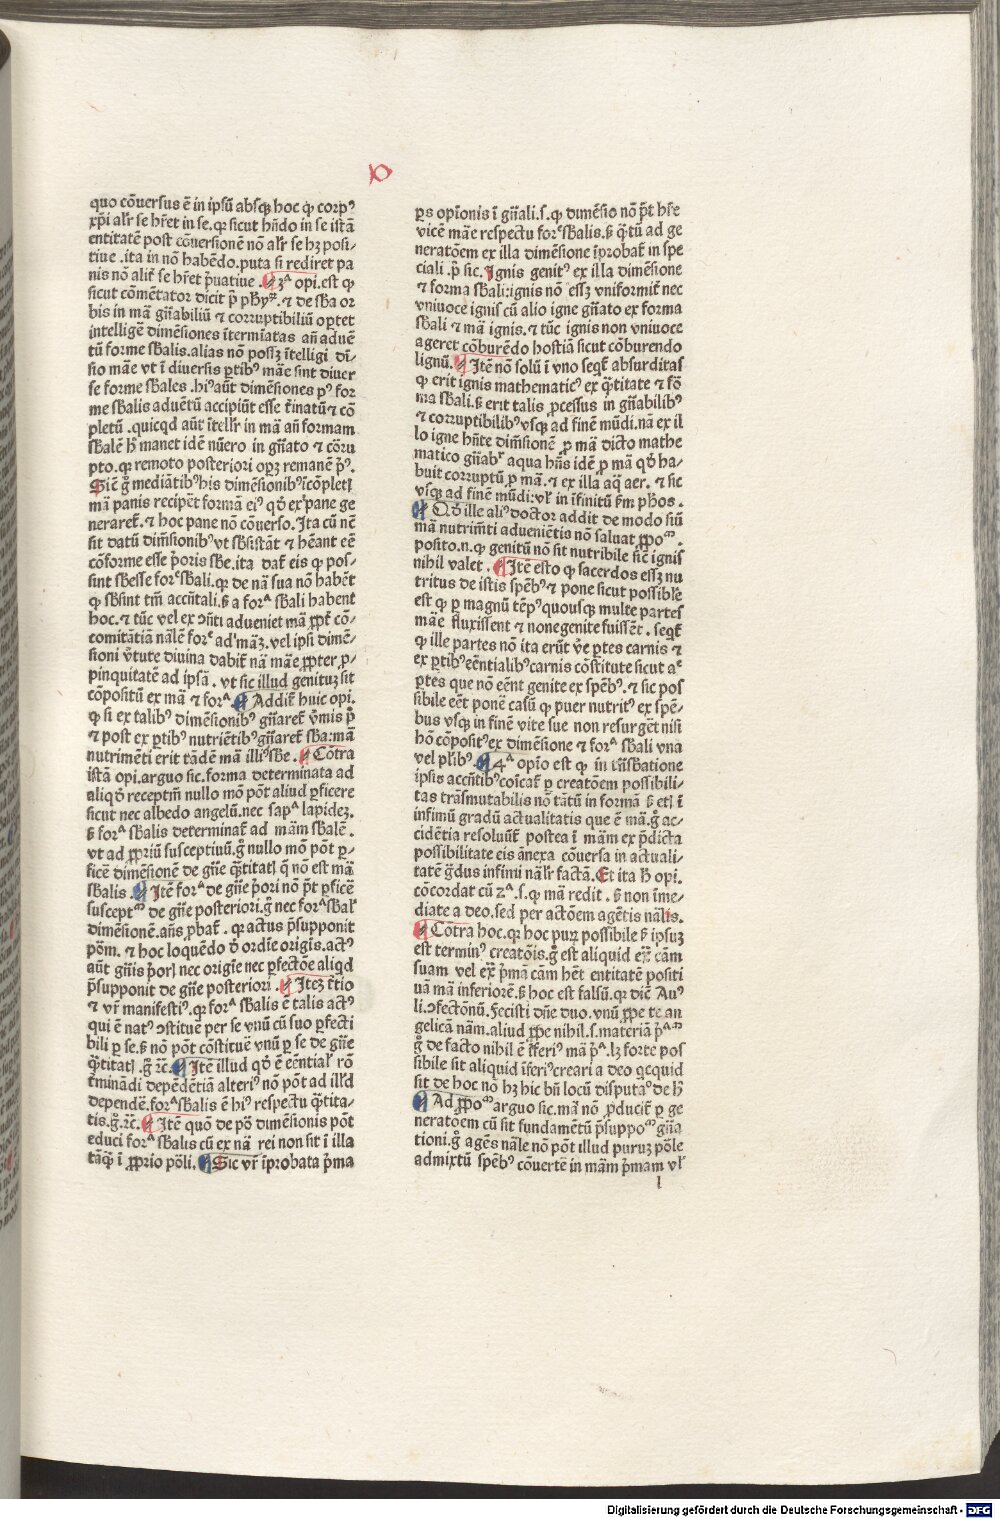 quo cõuersus ẽ in ipsũ absqȝ hoc ꝙ corpꝰ
xp̃i alr̃ se hr̃et in se. qꝛ sicut hñdo in se istã
entitatẽ post cõuersionẽ nõ alr̃ se hȝ posi-
tiue .ita in nõ habẽdo. puta si rediret pa
nis nõ alit̃ se hr̃et p̃uatiue . ¶ 3ᵃ opi. est ꝙ
sicut cõmẽtator dicit p̃ phyꝝ. ⁊ de sb̃a or
bis in mã gñabiliũ ⁊ corruptibiliũ oꝑtet
intelligẽ dimẽsiones ĩterm̃iatas añ aduẽ
tũ forme sb̃alis. alias nõ possȝ ĩtelligi dĩ-
sio mãe vt ĩ diuersis ꝑtibꝰ mãe sint diuer
se forme sb̃ales .hiꝰ aũt dimẽsiones pꝰ for
me sb̃alis aduẽtũ accipiũt esse t̃inatũ ⁊ cõ
pletũ .quicqd aũt ĩtellr̃ in mã añ formam
sb̃alẽ h̃ manet idẽ nũero in gñato ⁊ cõru
pto. qꝛ remoto posteriori opȝ remanẽ p̃ꝰ.
Siẽ g̃ mediãtibꝰ his dimẽsionibꝰ ĩcõpletꝭ
mã panis recipẽt formã eiꝰ qd̃ exꝰ pane ge
neraret̃. ⁊ hoc pane nõ cõuerso. Ita cũ nẽ
sit datũ dim̃sionibꝰ vt sb̃sistãt ⁊ hẽant eẽ
cõforme esse p̃oris sb̃e. ita dat̃ eis ꝙ pos-
sint sb̃esse forᵉ sb̃ali. qꝛ de nã sua nõ habẽt
ꝙ sb̃sint tm̃ accñtali. s̃ a forᵃ sb̃ali habent
hoc. ⁊ tũc vel ex ↄñti adueniet mã ꝓpt̃ cõ-
comitãtiã nãlẽ forᵉ ad mãȝ. vel ipsi dimẽ-
sioni v̾tute diuina dabit̃ nã mãe ꝓpter ꝓ-
pinquitatẽ ad ipsã . vt sic illud genituȝ sit
cõpositũ ex mã ⁊ forᵃ. ¶ Addit̃ huic opi.
ꝙ si ex talibꝰ dimẽsionibꝰ gñaret̃ v̾mis p̃
⁊ post ex ꝑtibꝰ nutriẽtibꝰ gñaret̃ sb̃a: mã
nutrimẽti erit eãdẽ mã illiꝰ sb̃e . ¶ Cõtra
istã opi. arguo sic. forma determinata ad
aliqd̃ receptiũ nullo mõ põt aliud ꝑficere
sicut nec albedo angelũ. nec sapᵃ lapideȝ.
s̃ forᵃ sb̃alis determinat̃ ad mãm sb̃alẽ .
vt ad ꝓpriũ susceptiuũ. g̃ nullo mõ põt ꝑ-
ficẽ dimẽsionẽ de gñe qᷓtitatꝭ q̃ nõ est mã
sb̃alis . ¶ Itẽ forᵃ de gñe p̃ori nõ p̃t ꝑficẽ
susceptᵐ de gñe posteriori. g̃ nec forᵃ sb̃alꝭ
dimẽsionẽ. añs ꝓbat̃ . qꝛ actus p̃supponit
põm. ⁊ hoc loquẽdo d̾ ordĩe origis. actꝰ
aũt gñis p̃orꝭ nec origĩe nec ꝑfectõe aliqd
p̃supponit de gñe posteriori . ¶ Iteȝ t̃tio
⁊ vr̃ manifestiꝰ. qꝛ forᵃ sb̃alis ẽ talis actꝰ
qui ẽ natꝰ ↄstituẽ per se vnũ cũ suo ꝑfecti
bili ꝑ se. s̃ nõ põt cõstituẽ vnũ ꝑ se de gñe
qᷓtitatꝭ. g̃ ⁊c̃. ¶ Itẽ illud qd̃ ẽ eẽntialꝭ rõ
t̃minãdi depẽdẽtiã alteriꝰ nõ põt ad ill̾d
dependẽ. forᵃ sb̃alis ẽ hiꝰ respectu qᷓtita-
tis. g̃. ⁊c̃. ¶ Itẽ quõ de põ dimẽsionis põt
educi forᵃ sb̃alis cũ ex nã rei non sit ĩ illa
tãqᷓ ĩ ꝓprio põli. ¶ Sic vr̃ ĩprobata p̃ma
ꝑs opĩonis ĩ gñali. s. ꝙ dimẽsio nõ p̃t hr̃e
vicẽ mãe respectu forᵉ sb̃alis. s̃ qᷓtũ ad ge
neratõem ex illa dimẽsione ĩprobat̃ in spe
ciali .p̃ sic. Ignis genitꝰ ex illa dimẽsione
⁊ forma sb̃ali: ignis nõ essȝ vniformit̃ nec
vniuoce ignis cũ alio igne gñato ex forma
sb̃ali ⁊ mã ignis. ⁊ tũc ignis non vniuoce
ageret cõburẽdo hostiã sicut cõburendo
lignũ. ¶ Itẽ nõ solũ ĩ vno seqt̃ absurditas
ꝙ erit ignis mathematicꝰ ex qᷓtitate ⁊ fõ
ma sb̃ali. s̃ erit talis ꝓcessus in gñabilibꝰ
⁊ corruptibilibꝰ vsqȝ ad finẽ mũdi. nã ex il
lo igne hñte dim̃sionẽ ꝑ mã dicto mathe
matico gñabꝭ aqua hñs idẽ ꝑ mã qd̃ ha-
buit corruptũ ꝑ mã. ⁊ ex illa aq̃ aer. ⁊ sic
vsqȝ ad finẽ mũdi: vlꝭ in ĩfinitũ s̃m ph̃os .
¶ Qd̃ ille aliꝰ doctor addit de modo siũ
mã nutrim̃ti adueniẽtis nõ saluat ꝓpoᵐ .
posito. n. ꝙ genitũ nõ sit nutribile siẽ ignis
nihil valet . ¶ Itẽ esto ꝙ sacerdos essȝ nu
tritus de istis spẽbꝰ ⁊ pone sicut possibl̾e
est ꝙ ꝑ magnũ tẽpꝰ quousqȝ multe partes
mãe fluxissent ⁊ none genite fuissẽt . seqt̃
ꝙ ille partes nõ ita erũt v̾e ꝑtes carnis ⁊
ex ꝑtibꝰ eẽntialibꝰ carnis cõstitute sicut aᵉ
ꝑtes que nõ eẽnt genite ex spẽbꝰ. ⁊ sic pos
sibile eẽt ponẽ casũ ꝙ puer nutritꝰ ex spẽ-
bus vsqȝ in finẽ vite sue non resurgẽt nisi
hõ cõpositꝰ ex dimẽsione ⁊ forᵃ sb̃ali vna
vel pl̾ibꝰ. ¶ 4ᵃ opĩo est ꝙ in trãsb̃atione
ipsis accñtibꝰ coĩcat̃ ꝑ creatõem possibili-
tas trãsmutabilis nõ tãtũ in formã s̃ etꝭ ĩ
infimũ gradũ actualitatis que ẽ mã. g̃ ac-
cidẽtia resoluũt̃ postea ĩ mãm ex p̃dicta
possibilitate eis ãnexa cõuersa in actuali-
tatẽ g̃dus infimi nãlr̃ factã. Et ita h̃ opi.
cõcordat cũ 2ᵃ. s. ꝙ mã redit . s̃ non ĩme-
diate a deo. sed per actõem agẽtis nãlis.
¶ Cõtra hoc. qꝛ hoc puꝝ possibile s̃ ipsuȝ
est terminꝰ creatõis. g̃ est aliquid ex̃ cãm
suam vel ex̃ p̃mã cãm hẽt entitatẽ positi
uã mã inferiorẽ. s̃ hoc est falsũ. qꝛ dic̃ Auꝰ
li. ↄfectonũ. Fecisti dñe duo. vnũ ꝓpe te an
gelicã nãm. aliud ꝓpe nihil. s. materiã p̃ᵃᵐ
g̃ de facto nihil ẽ ĩferiꝰ mã p̃ᵃ. lȝ forte pos
sibile sit aliquid ĩferiꝰ creari a deo qcquid
sit de hoc nõ hȝ hic bñ locũ disputaᵒ de h̃
¶ Ad ꝓpoᵐ arguo sic. mã nõ ꝓducit̃ ꝑ ge
neratõem cũ sit fundamẽtũ p̃suppoᵐ gña
tioni. g̃ agẽs nãle nõ põt illud puruȝ põle
admixtũ spẽbꝰ cõuertẽ in mãm p̃mam vlꝭ
l
Digitalisierung gefördert durch die Deutsche Forschungsgemeinschaft - DFG